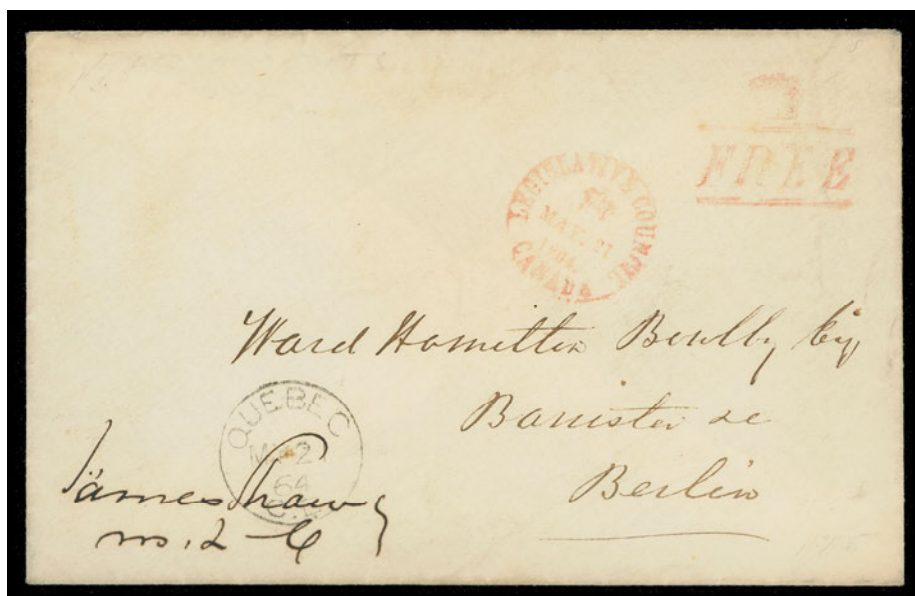 FREE
LEGISLATIVE COUNCIL
MAY. 27
1864.
CANADA
Ward Hamilton Bowlby Esq
Barrister &c
Berlin
QUEBEC
64
James Shaw
M.L.C